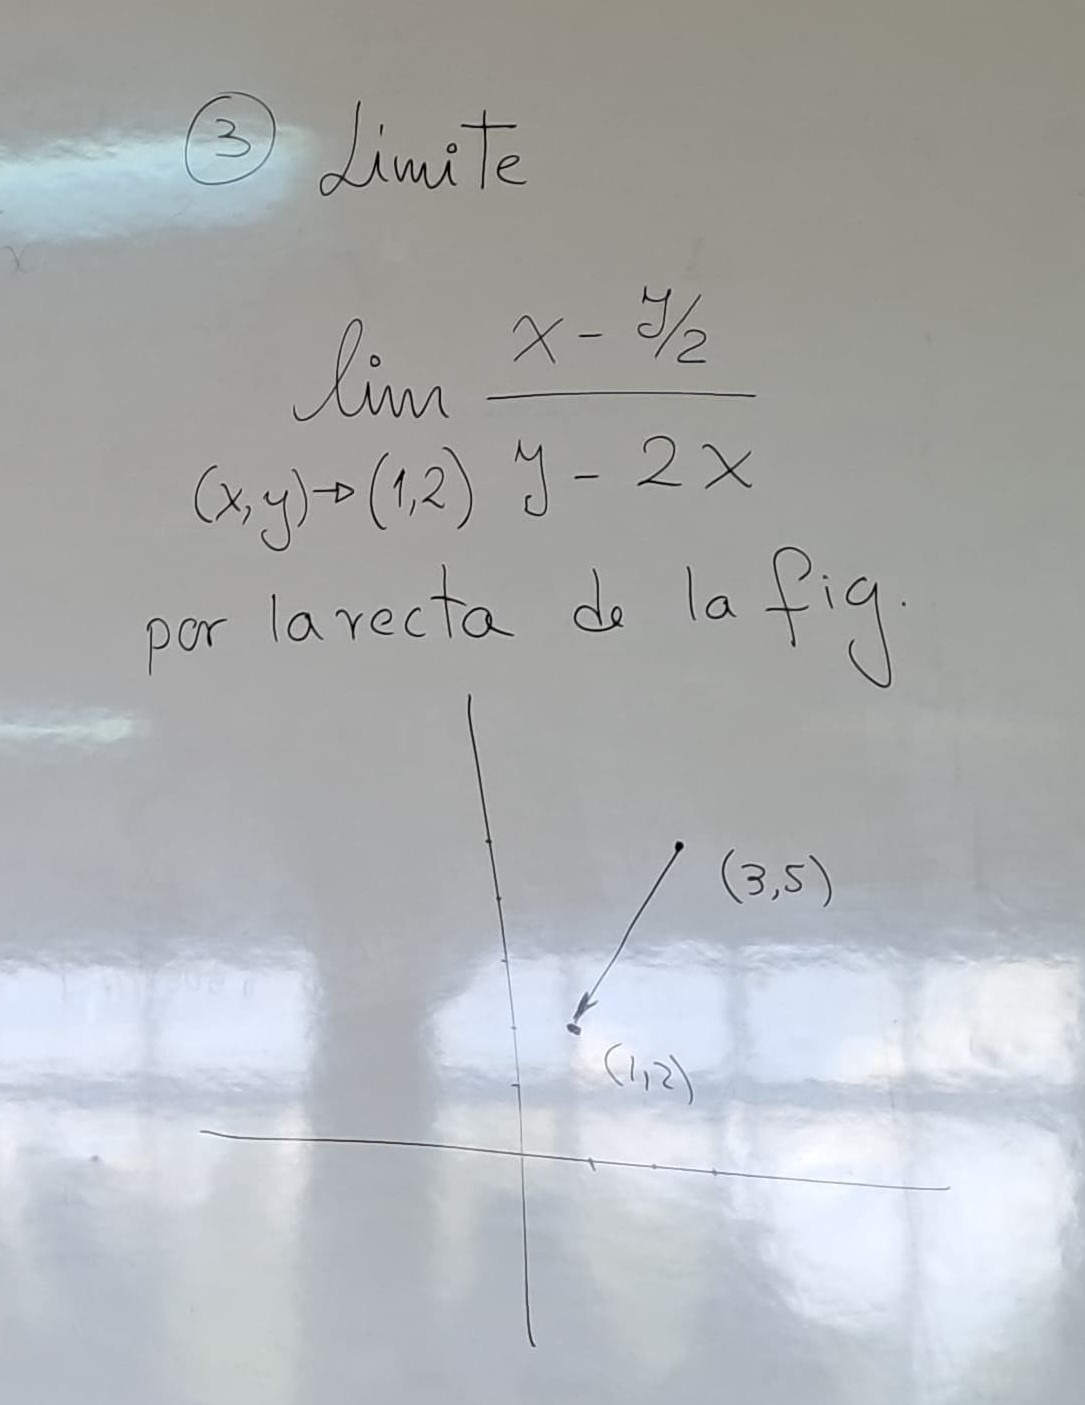 ③ Limite
lim x - y/2
(x,y)→(1,2) y - 2x
por la recta de la fig.
(3,5)
(1,2)